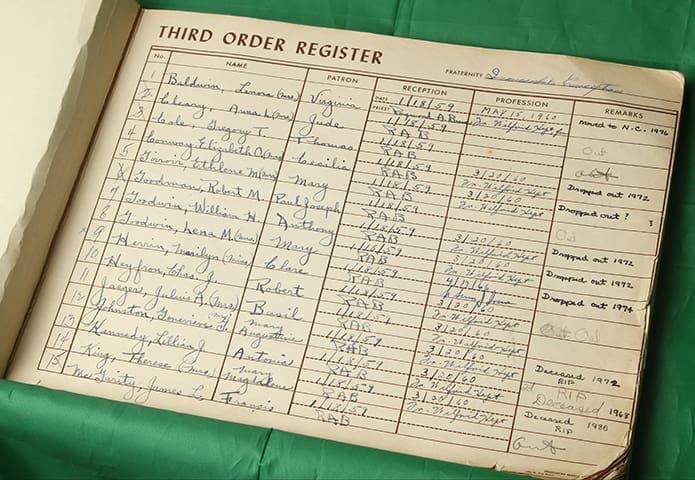 THIRD ORDER REGISTER
FRATERNITY Immaculate Conception
No. NAME PATRON RECEPTION PROFESSION REMARKS
1 Baldwin, Lenora (Mrs) Virginia DATE 1/18/59 MAY 15, 1960 Moved to N.C. 1996
PRIEST
2 Cleary, Anna L. (Mrs) Jude 1/18/59 Out
RAB
3 Cole, Gregory T. Thomas 1/18/59 Out
RAB
4 Conway, Elizabeth O. (Mrs) Cecilia 1/18/59 3/20/60 Dropped out 1972
RAB Fr. Wilfrid Hept
5 Ethelene M (Mrs) Mary 1/18/59 3/20/60 Dropped out ?
RAB Fr. Wilfrid Hept
6 Goodman, Robert M. Paul Joseph 1/18/59
RAB
7 Goodwin, William H. Anthony 1/18/59 3/20/60 Dropped out 1972
RAB Fr. Wilfrid Hept
8 Goodwin, Lena M. (Mrs) Mary 1/18/59 3/20/60 Dropped out 1972
RAB Fr. Wilfrid Hept
9 Herrin, Marilyn (Miss) Clare 1/18/59 Dropped out 1974
RAB
10 Heyfron, Chas. J. Robert 1/18/59 3/20/60
RAB Fr. Wilfrid Hept
11 Jaeger, Julius A. (Mrs) Basil 1/18/59 3/20/60
RAB Fr. Wilfrid Hept
12 Johnston, Genevieve T. (Mrs) Mary Augustine 1/18/59 3/20/60 Deceased 1972
RAB Fr. Wilfrid Hept RIP
13 Kennedy, Lillian J Antonia 1/18/59 3/20/60 RIP
RAB Fr. Wilfrid Hept Deceased 1968
14 King, Therese (Mrs) Mary Magdalene 1/18/59 3/20/60 Deceased 1980
RAB Fr. Wilfrid Hept RIP
15 James L. Francis 1/18/59 Out
RAB